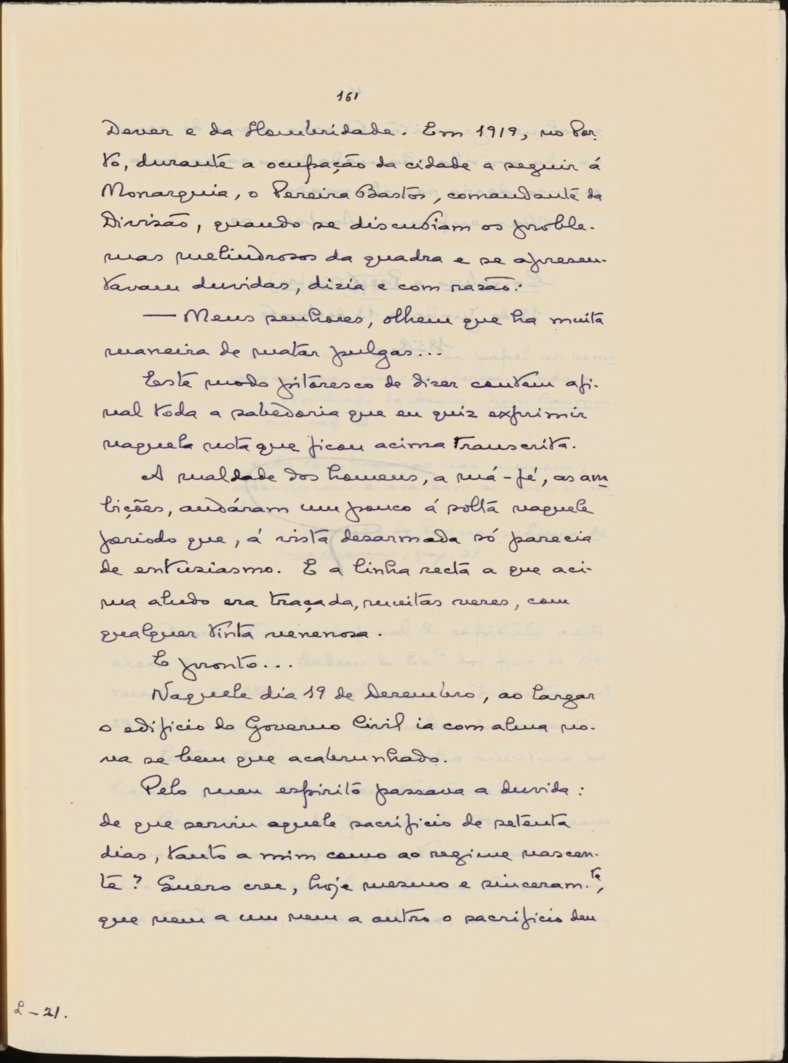 161
Dever e da Hombridade. Em 1919, no Por-
to, durante a ocupação da cidade a seguir á
Monarquia, o Pereira Bastos, comandante da
Divisão, quando se discutiam os proble-
mas melindrosos da quadra e se apresen-
tavam duvidas, dizia e com razão:
— Meus senhores, olhem que ha muita
maneira de matar pulgas...
Este modo pitoresco de dizer contem afi-
nal toda a sabedoria que eu quiz exprimir
naquela nota que ficou acima transcrita.
A maldade dos homens, a má-fé, as am-
bições, andáram um pouco á solta naquele
periodo que, á vista desarmada só parecia
de entusiasmo. E a linha recta a que aci-
ma aludo era traçada, muitas vezes, com
qualquer tinta venenosa.
E pronto...
Naquele dia 19 de Dezembro, ao largar
o edificio do Governo Civil ia com alma no-
va se bem que acabrunhado.
Pelo meu espirito passava a duvida:
de que serviu aquele sacrificio de setenta
dias, tanto a mim como ao regime nascen-
te? Quero crer, hoje mesmo e sinceram.te,
que nem a um nem a outro o sacrificio deu
L-21.